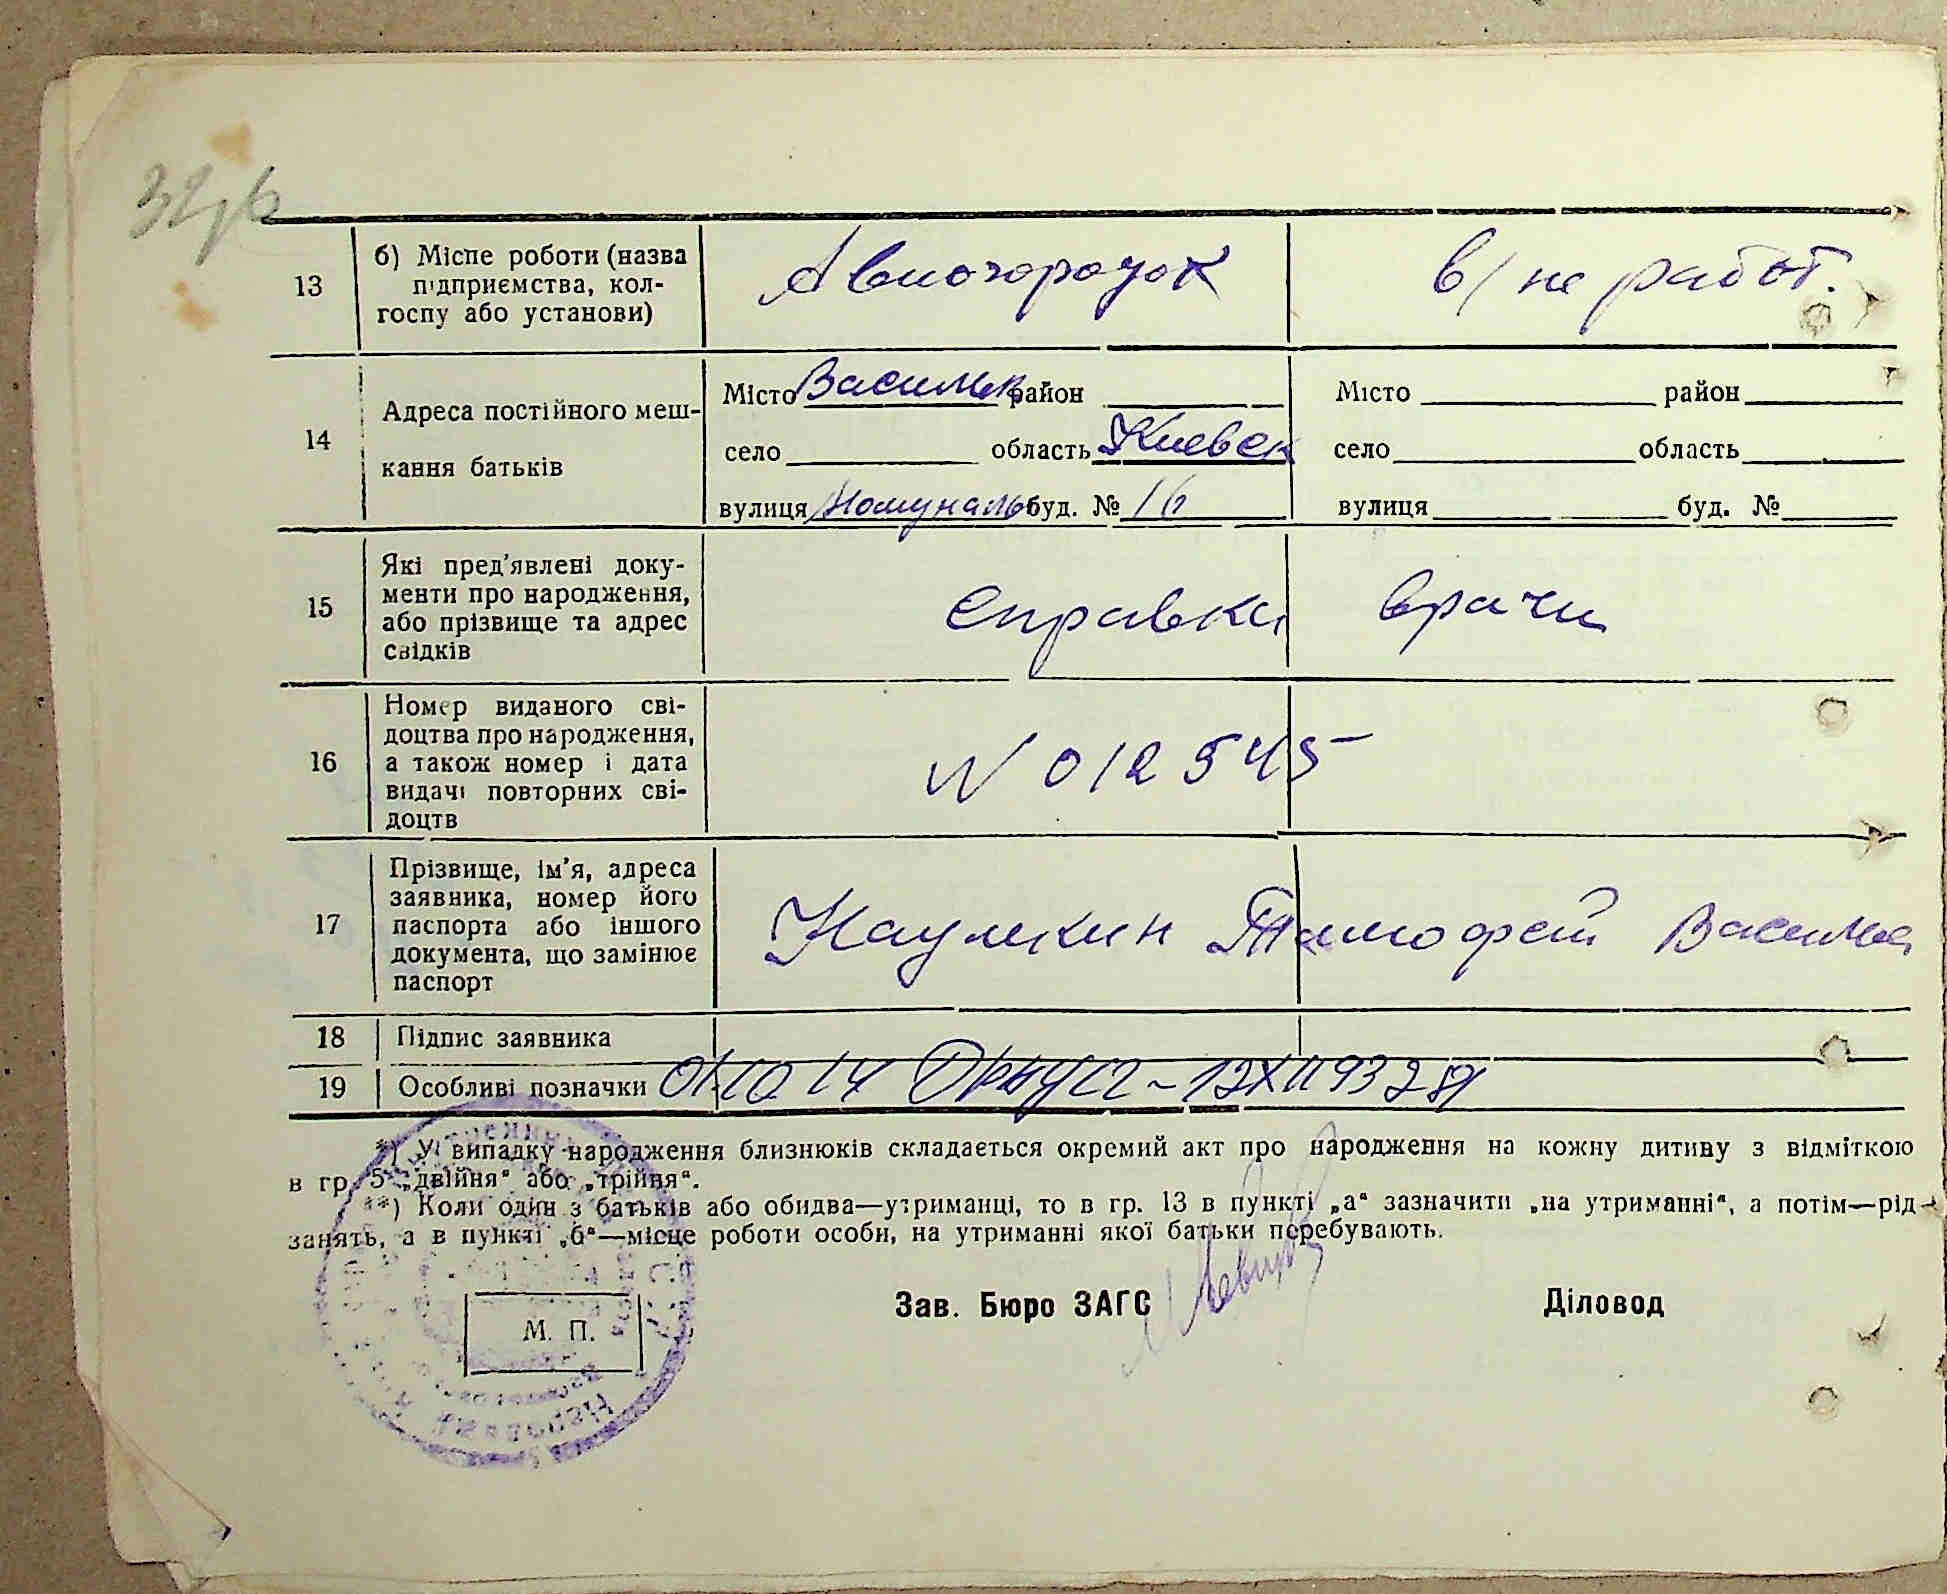 13
б) Місце роботи (назва
підприємства, кол-
госпу або установи)
Авиогородок
в/ не работ.
14
Адреса постійного меш-
кання батьків
Місто Васильк район
село область Киевск
вулиця Комуналь буд. № 16
Місто район
село область
вулиця буд. №
15
Які пред'явлені доку-
менти про народження,
або прізвище та адрес
свідків
Справка врача
16
Номер виданого сві-
доцтва про народження,
а також номер і дата
видачі повторних сві-
доцтв
N 012545
17
Прізвище, ім'я, адреса
заявника, номер його
паспорта або іншого
документа, що замінює
паспорт
Наумкин Тимофей Василье
18
Підпис заявника
19
Особливі позначки
*) У випадку народження близнюків складається окремий акт про народження на кожну дитину з відміткою
в гр. 5 „двійня“ або „трійня“.
**) Коли один з батьків або обидва—утриманці, то в гр. 13 в пункті „а“ зазначити „на утриманні“, а потім—рід
занять, а в пункті „б“—місце роботи особи, на утриманні якої батьки перебувають.
Зав. Бюро ЗАГС
Діловод
М. П.